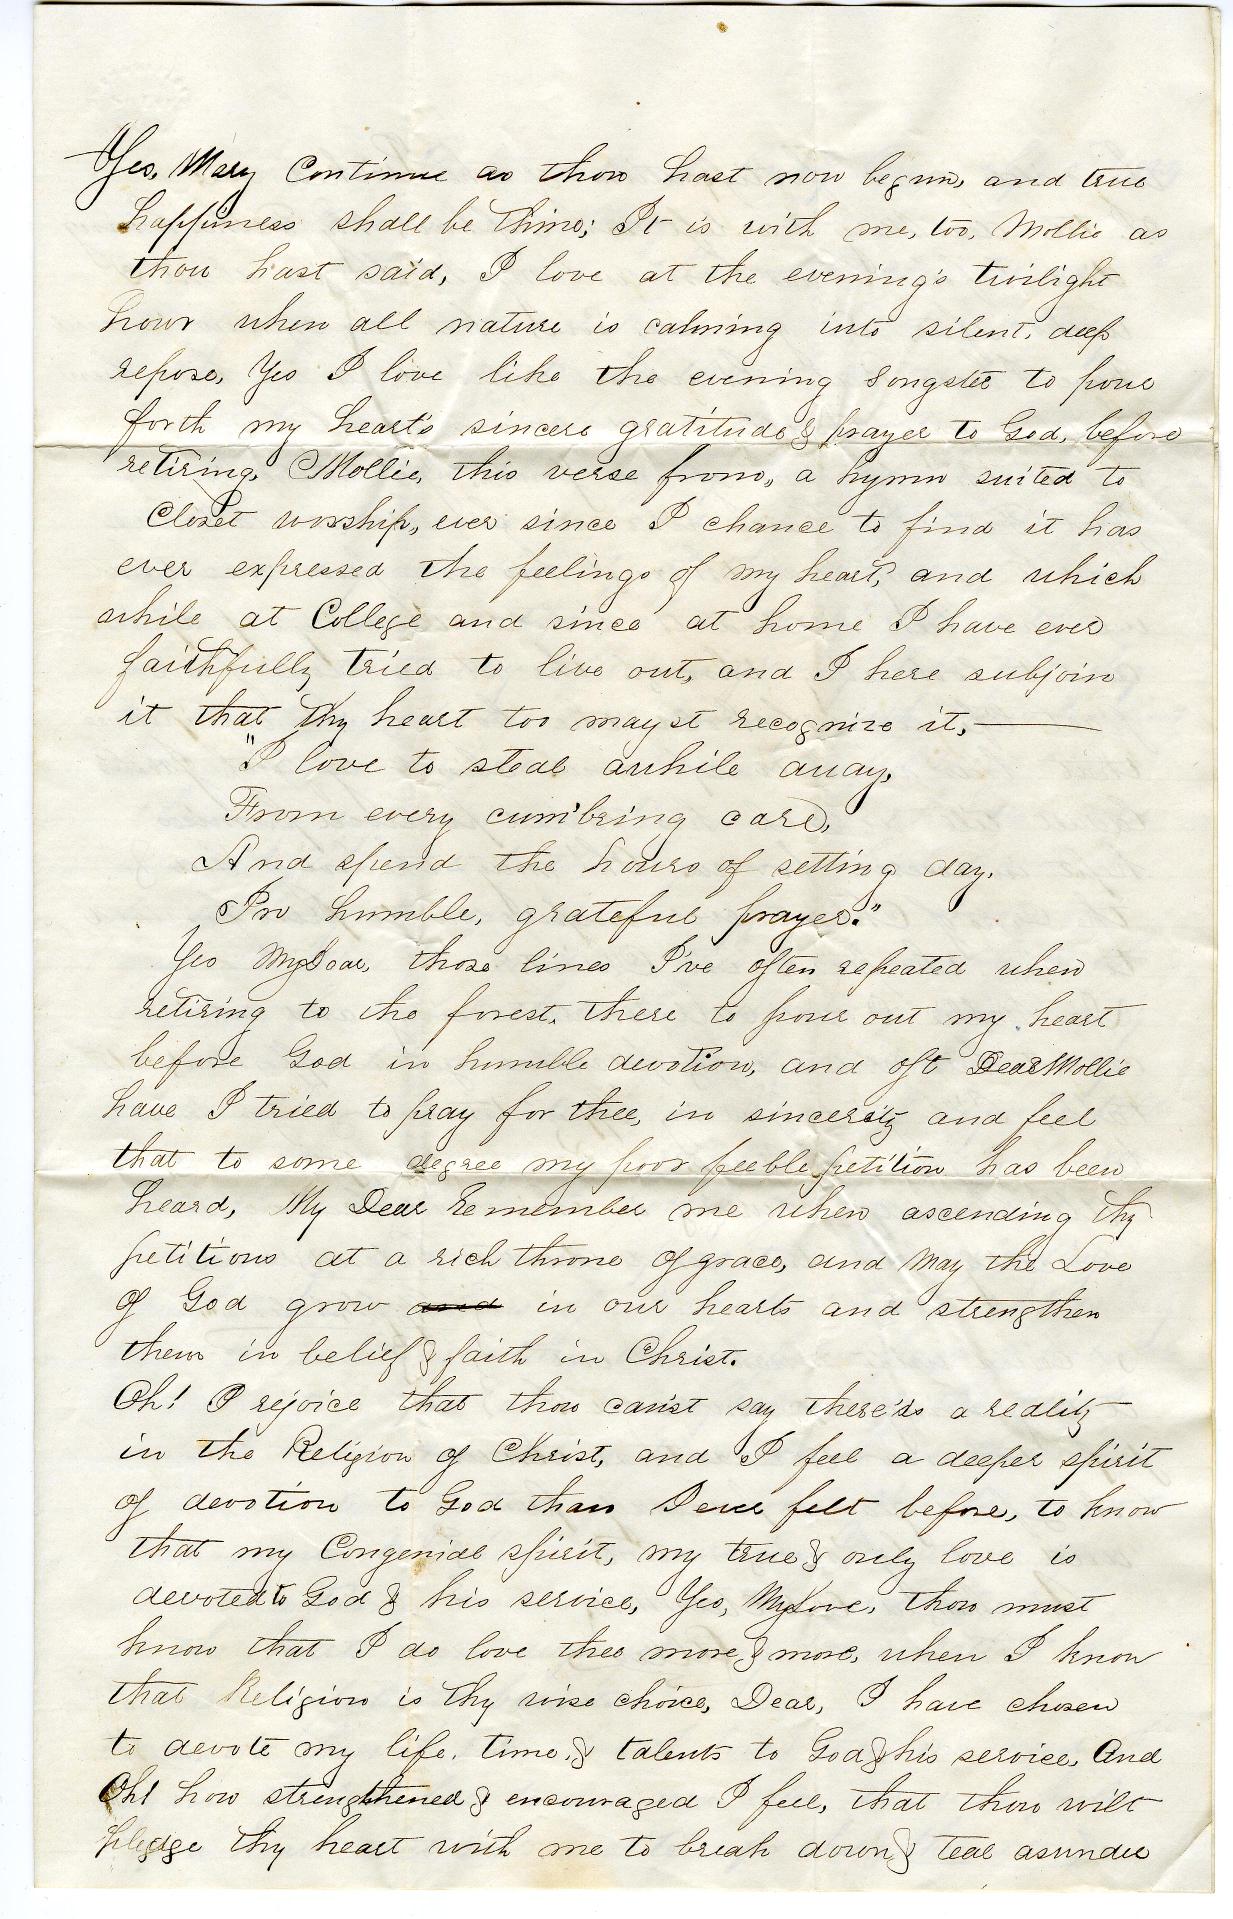 Yes, Mary Continue as thou hast now begun, and true
happiness shall be thine; It is with me, too, Mollie as
thou hast said, I love at the evening's twilight
hour when all nature is calming into silent, deep
repose, Yes I love like the evening songster to pour
forth my heart's sincere gratitude & prayer to God, before
retiring, Mollie, this verse from, a hymn suited to
Closet worship, ever since I chance to find it has
ever expressed the feelings of my heart, and which
while at College and since at home I have ever
faithfully tried to live out, and I here subjoin
it that thy heart too mayst recognize it,—
"I love to steal awhile away,
From every cum'bring care,
And spend the hours of setting day.
In humble, grateful prayer."
Yes My Dear, those lines I've often repeated when
retiring to the forest, there to pour out my heart
before God in humble devotion, and oft Dear Mollie
have I tried to pray for thee, in sincerity and feel
that to some degree my poor feeble petition has been
heard, My Dear Remember me when ascending thy
petitions at a rich throne of grace, and may the Love
of God grow and in our hearts and strengthen
them in belief & faith in Christ.
Oh! I rejoice that thou can'st say there's a reality
in the Religion of Christ, and I feel a deeper spirit
of devotion to God than I ever felt before, to know
that my Congenial spirit, my true & only love is
devoted to God & his service, Yes, My Love, thou must
know that I do love thee more & more, when I know
that Religion is thy wise choice, Dear, I have chosen
to devote my life, time, & talents to God & his service, And
Oh! how strengthened & encouraged I feel, that thou wilt
pledge thy heart with me to break down & tear asunder